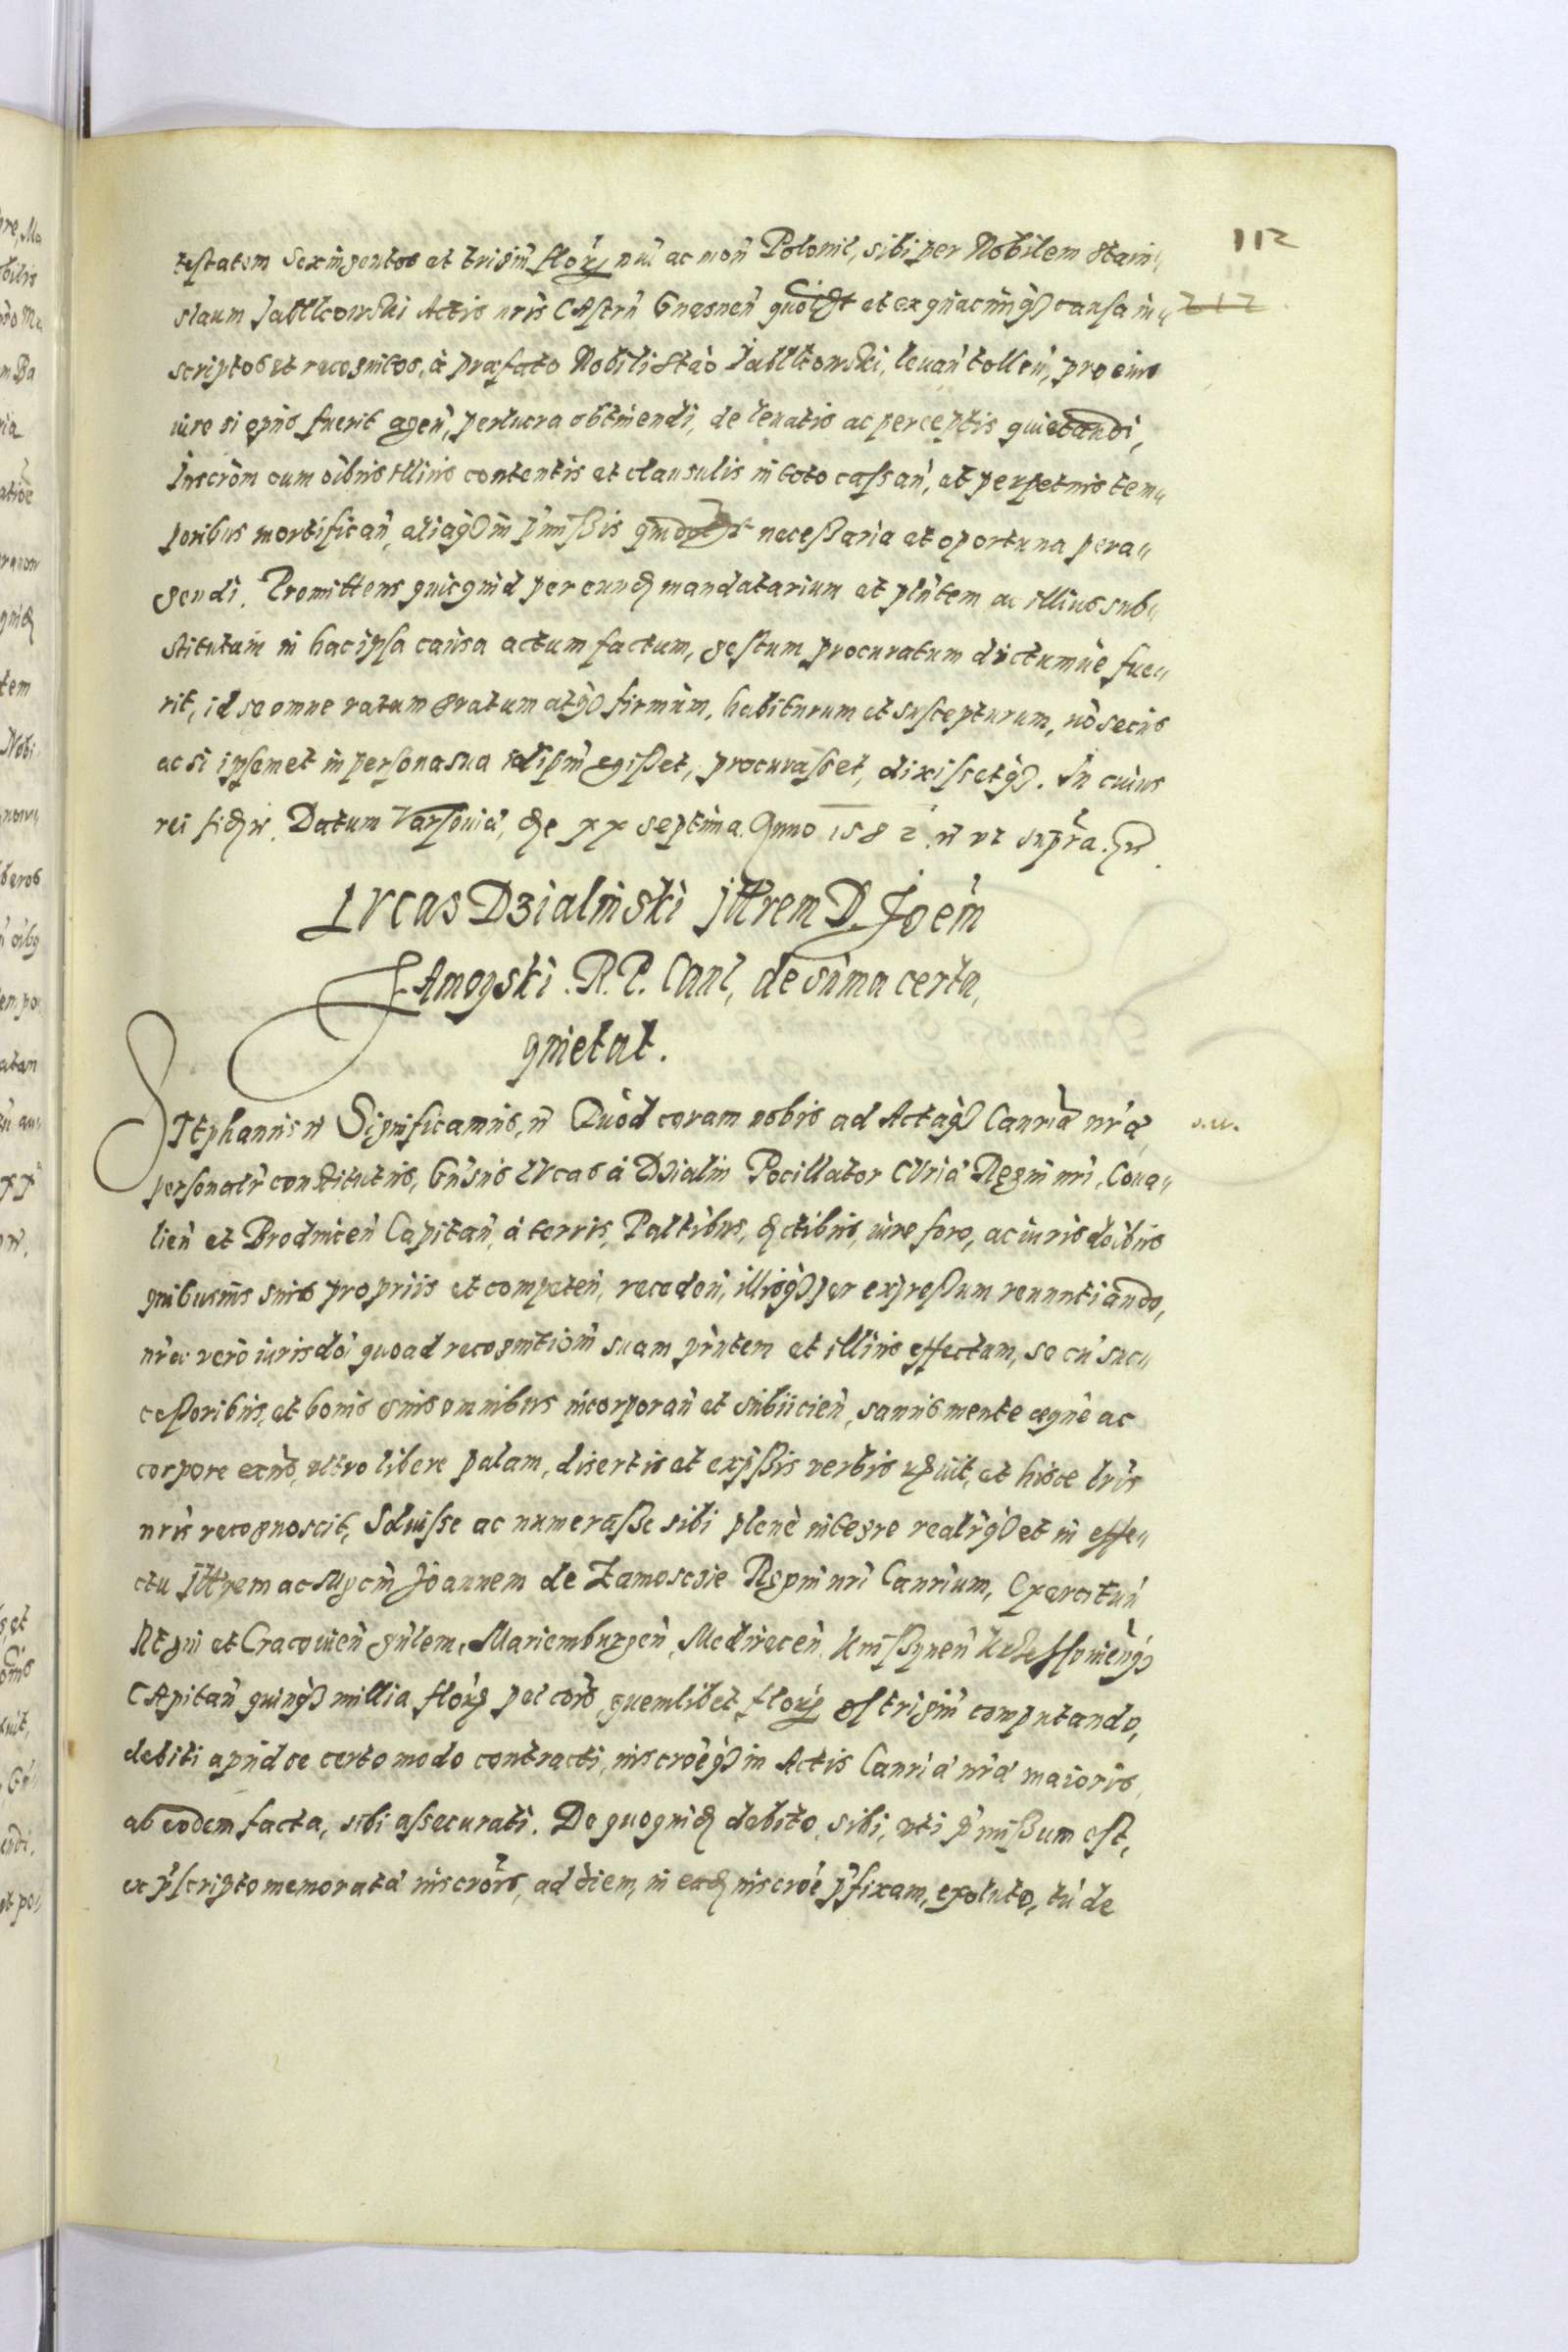 112
testatem Sexingentos et trigin florꝫ nul ac mon Polonic, sibi per Nobilem Stani„
slaum Jabllkowski Actis nris CAstrn Gnesnen quolꝫt et ex quacunqꝫ causa in„
212
scriptos et recognitos, à præfato Nobili Stao Jabllkowski, leuan tollen, pro eius
iure si opus fuerit agen, perlucra obtinendi, de leuatis ac perceptis quietandi,
Inscrom cum oibus illius contentis et clausulis in toto cassan, et perpetuis tem„
poribus mortifican, aliaqꝫ in pmissis necessaria et oportuna pera„
gendi. Promittens quicquid per eundꝫ mandatarium et plntem ac illius sub„
stitutum in hac ipsa causa actum factum, gestum procuratum dictumue fue„
rit, id se omne ratum gratum atqꝫ firmum, habiturum et suscepturum, no secus
ac si ipsemet in persona sua idipm egisset, procurasset, dixissetqꝫ. In cuius
rei fidꝫ Datum Varsouiæ, die xx septima Anno 1582 ut supra.
LVCAS Dzialinski Jllrem D. Joem
ZAmoyski. R. P. Canc, de suma certa,
quietat.
STephanus Significamus, Quod coram nobis ad Actaqꝫ Canriæ nræ
personalr constitutus, Gnsus LVcas à Dzialin Pocillator CVriæ Regni nri, Coua„
lien et Brodnicen Capitan, à terris, Paltibus, dꝫctibus, iure foro, ac iurisdoibus
quibusuis suis propriis et competen, receden, illisqꝫ per expressum renuntiando,
nræ vero iurisdoi quoad recognitiom suam prntem et illius effectum, se cu suc„
cessoribus, et bonis suis omnibus incorporan et subiicien, sanus mente æque ac
corpore exns, vltro libere palam, disertis et expssis verbis et hisce lris
nris recognoscit, Soluisse ac numerasse sibi plenè integre realrqꝫ et in effe„
ctu Jllrem ac Mgcm Joannem de Zamoscie Regni nri Canrium, Exercitun
Regni et Cracouien gnlem, Mariemburgen, Medirecen Knissynen
CApitan quinqꝫ millia florꝫ pec coro, quemlibet florꝫ trigin computando,
debiti apud se certo modo contracti, inscroeqꝫ in Actis Canriæ nræ maioris,
ab eodem facta, sibi assecurati. De quoquidꝫ debito, sibi, vti pmissum est,
ex pscripto memoratæ inscrois, ad diem, in eadꝫ inscroe pfixam, exoluto, tu de